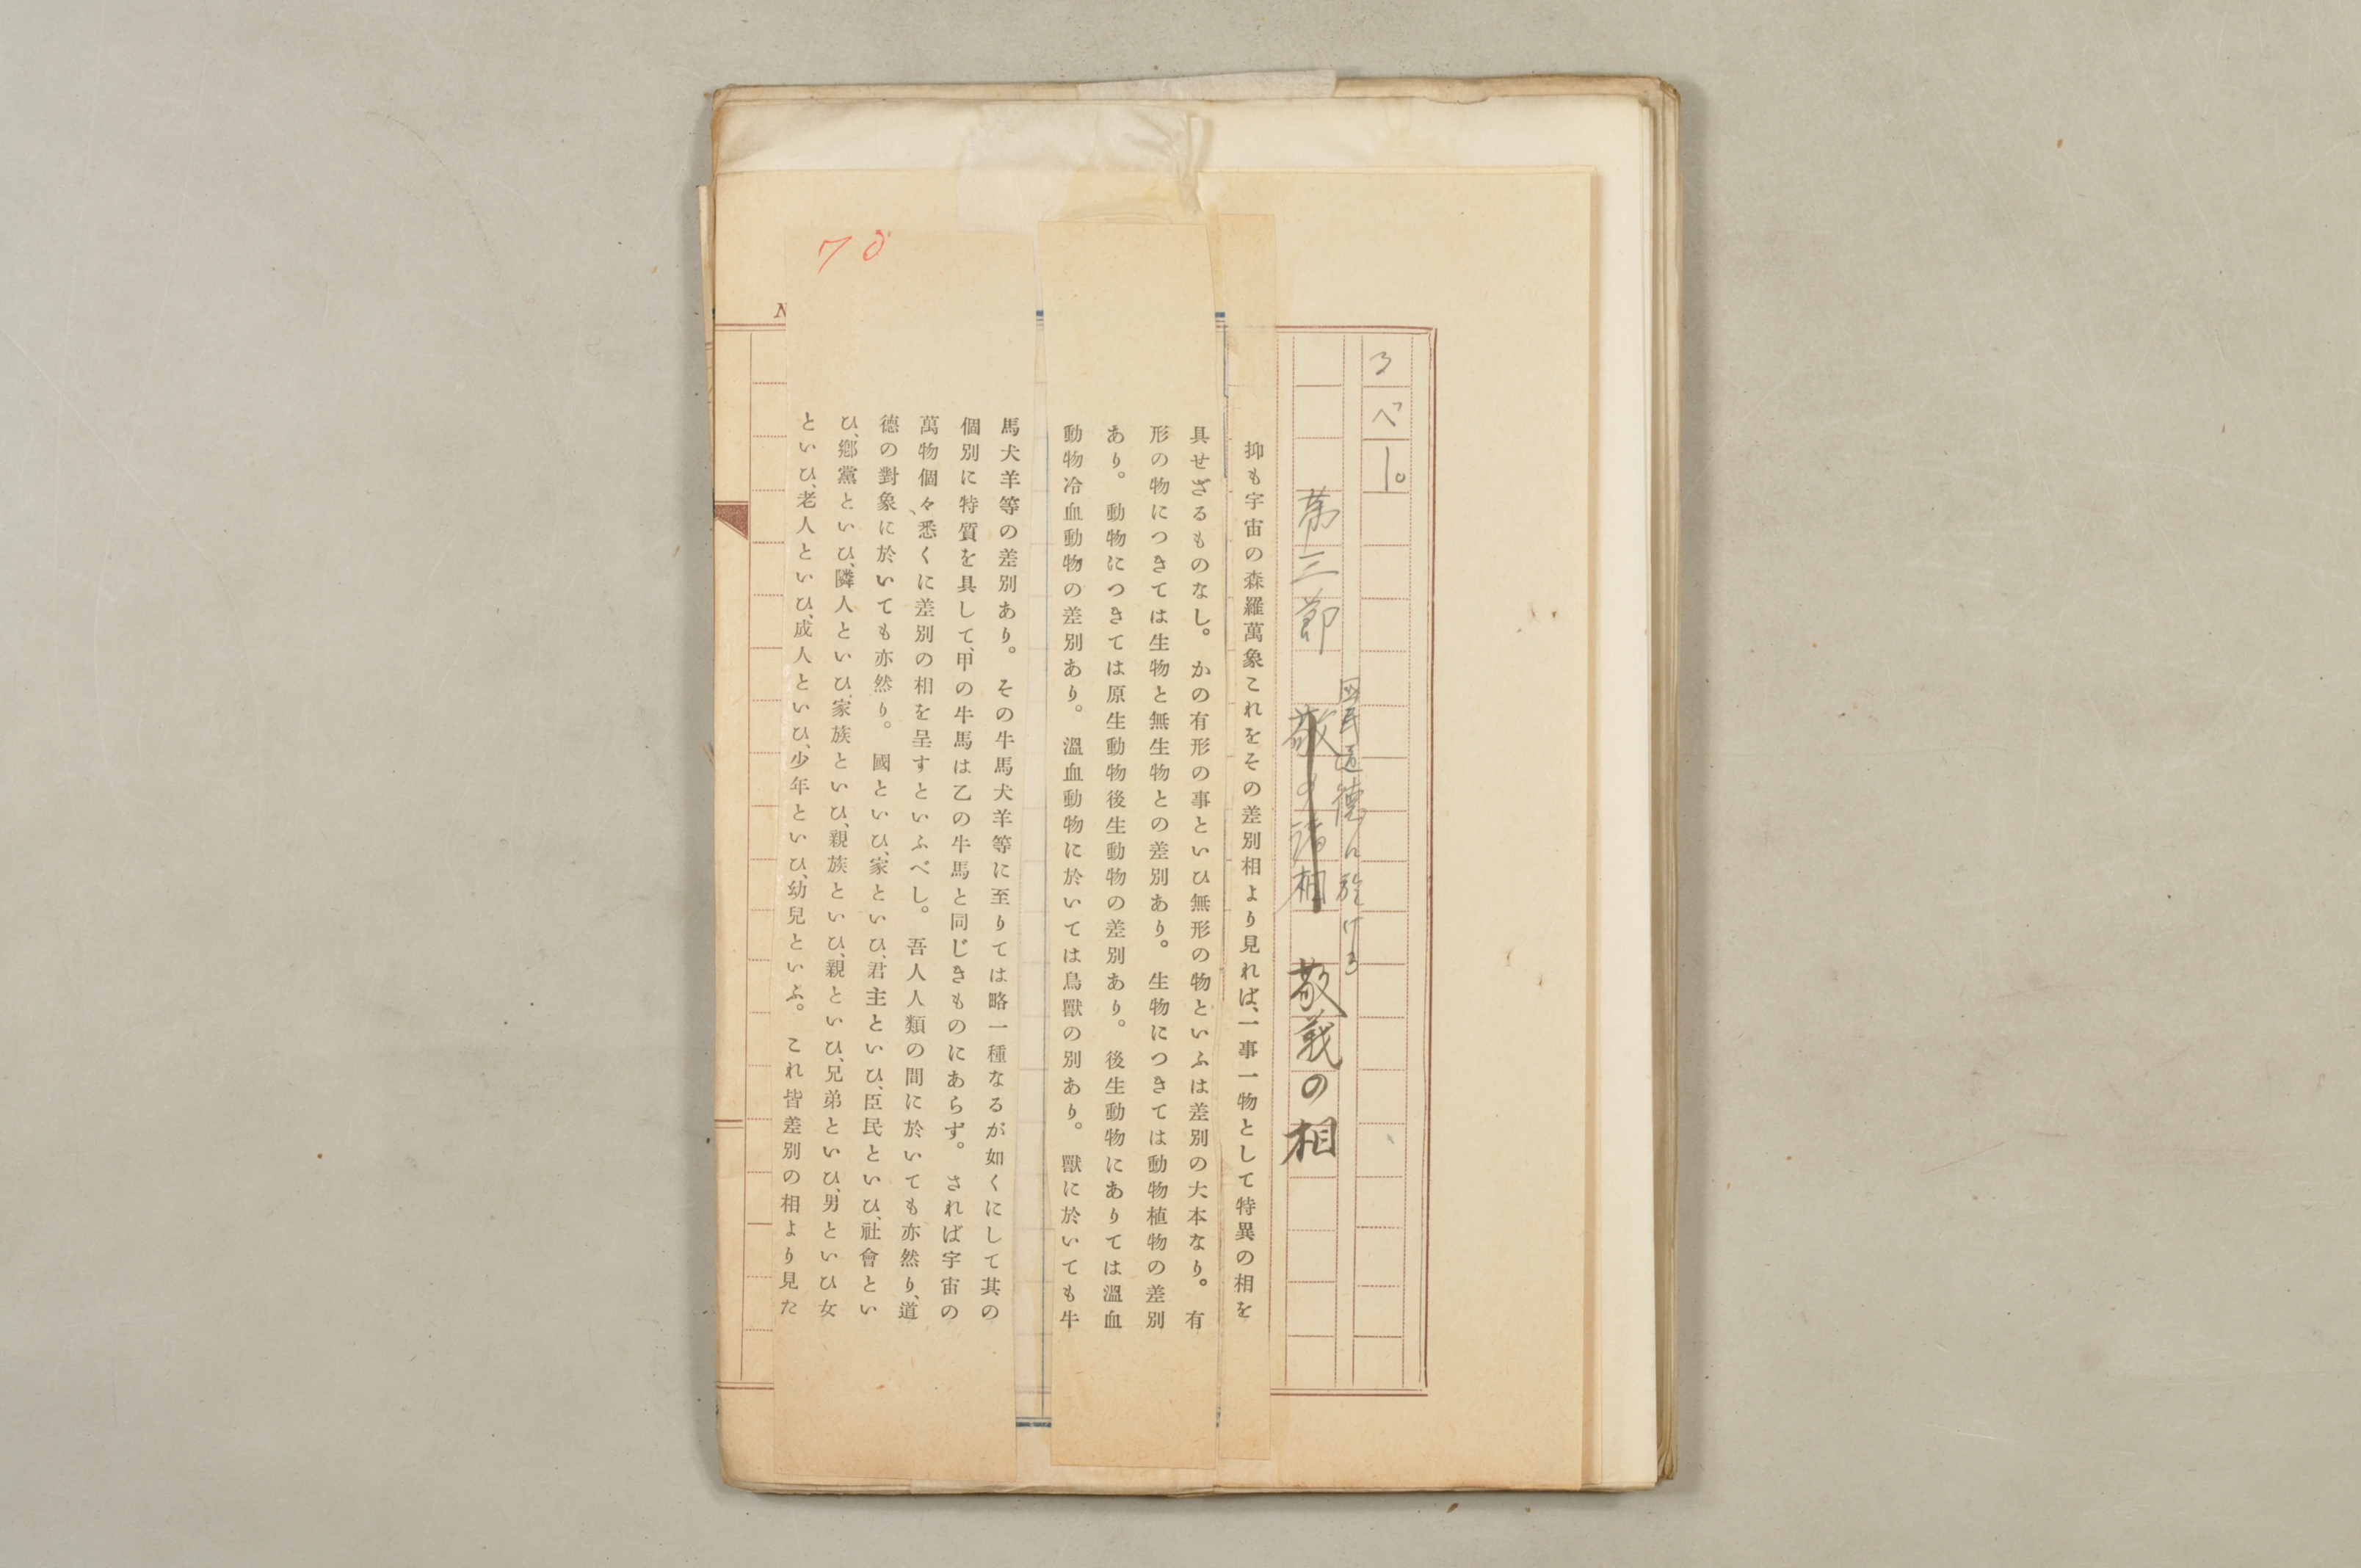 るべし。
第三節 敬の諸相 敬義の相
国民道徳に於ける
抑も宇宙の森羅萬象これをその差別相より見れば、一事一物として特異の相を
具せざるものなし。かの有形の事といひ無形の物といふは差別の大本なり。有
形の物につきては生物と無生物との差別あり。生物につきては動物植物の差別
あり。動物につきては原生動物後生動物の差別あり。後生動物にありては溫血
動物冷血動物の差別あり。溫血動物に於いては鳥獸の別あり。獸に於いても牛
馬犬羊等の差別あり。その牛馬犬羊等に至りては略一種なるが如くにして其の
個別に特質を具して、甲の牛馬は乙の牛馬と同じきものにあらず。されば宇宙の
萬物個々、悉くに差別の相を呈すといふべし。吾人人類の間に於いても亦然り、道
德の對象に於いても亦然り。國といひ、家といひ、君主といひ、臣民といひ、社會とい
ひ、鄕黨といひ、隣人といひ、家族といひ、親族といひ、親といひ、兄弟といひ、男といひ女
といひ、老人といひ、成人といひ、少年といひ、幼兒といふ。これ皆差別の相より見た
70
N